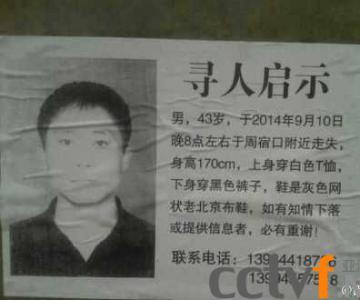 寻人启示
男，43岁，于2014年9月10日
晚8点左右于周宿口附近走失，
身高170cm，上身穿白色T恤，
下身穿黑色裤子，鞋是灰色网
状老北京布鞋，如有知情下落
或提供信息者，必有重谢！
联系电话：
cctvf